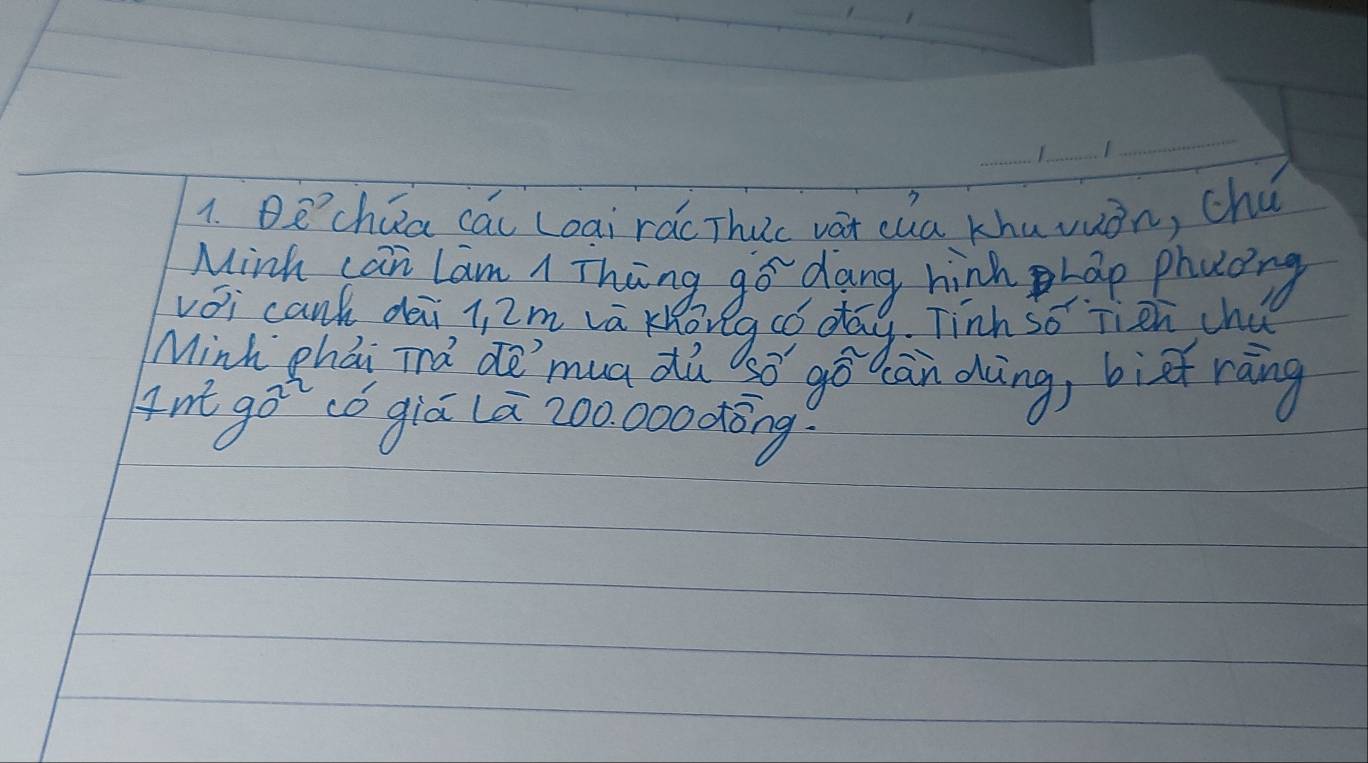 1. Để chứa các loại rác thực vật của khu vườn, chú
Minh cần làm 1 thùng gỗ dạng hình lập phương
với cạnh dài 1,2m và không có đáy. Tính số tiền chú
Minh phải trả để mua đủ số gỗ cần dùng, biết rằng
1m² gỗ có giá là 200.000 đồng.